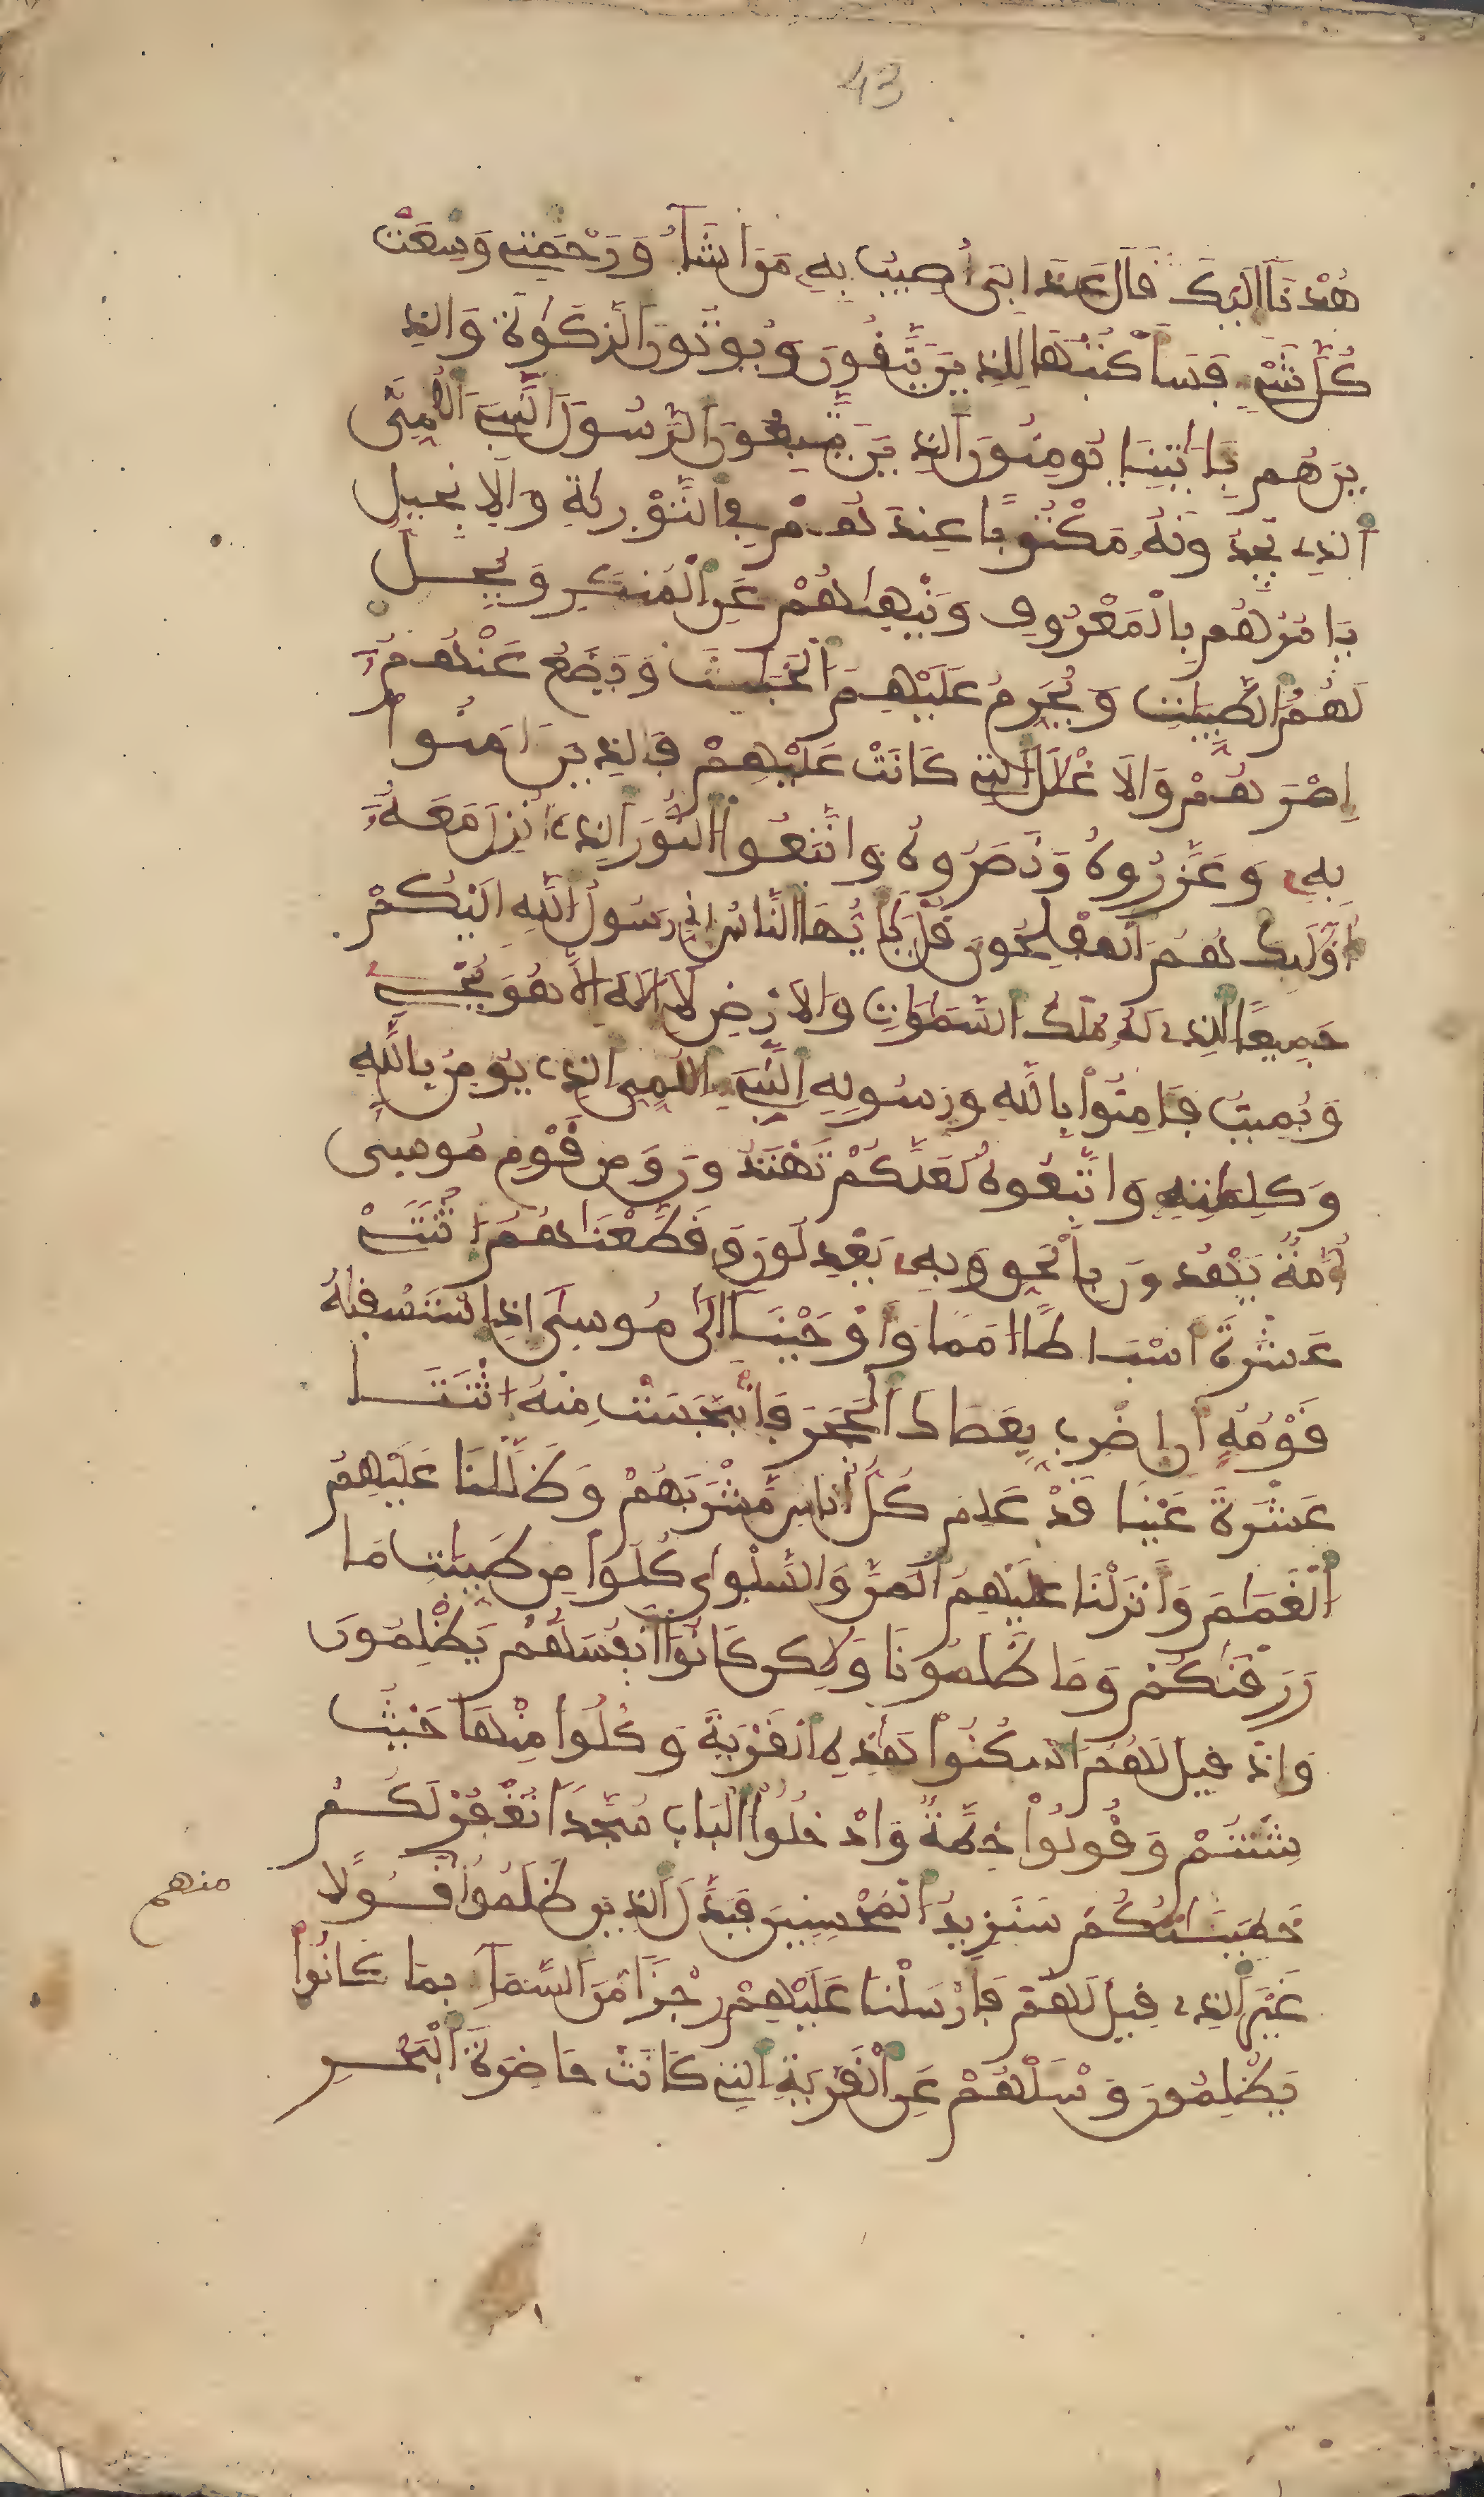 43
هُدْنَا إِلَيْكَ قَالَ عَذَابِي أُصِيبُ بِهِ مَنَ اشَآءُ وَرَحْمَتِي وَسِعَتْ
كُلَّ شَيْءٍ فَسَأَكْتُبُهَا لِلذِينَ يَتَّقُونَ وَيُوتُونَ الزَّكَوٰةَ وَالذِ
ينَ هُم بِـَٔايَٰتِنَا يُومِنُونَ الذِينَ يَتَّبِعُونَ الرَّسُولَ النَّبِيَّ الُامِّيَّ
الذِي يَجِدُونَهُ مَكْتُوبًا عِندَهُمْ فِي التَّوْرَىٰةِ وَالِانجِيلِ
يَامُرُهُم بِالْمَعْرُوفِ وَيَنْهَىٰهُمْ عَنِ الْمُنكَرِ وَيُحِلُّ
لَهُمُ الطَّيِّبَٰتِ وَيُحَرِّمُ عَلَيْهِمُ الْخَبَٰٓئِثَ وَيَضَعُ عَنْهُمُ
إِصْرَهُمْ وَالَاغْلَٰلَ التِي كَانَتْ عَلَيْهِمْ فَالذِينَ ءَامَنُوا
بِهِ وَعَزَّرُوهُ وَنَصَرُوهُ وَاتَّبَعُوا النُّورَ الذِي أُنزِلَ مَعَهُ
أُوْلَٰٓئِكَ هُمُ الْمُفْلِحُونَ قُلْ يَٰٓأَيُّهَا النَّاسُ إِنِّي رَسُولُ اللَّهِ إِلَيْكُمْ
جَمِيعًا الذِي لَهُ مُلْكُ السَّمَٰوَٰتِ وَالَارْضِ لَآ إِلَٰهَ إِلَّا هُوَ يُحْيِي
وَيُمِيتُ فَـَٔامِنُوا بِاللَّهِ وَرَسُولِهِ النَّبِيِّ الُامِّيِّ الذِي يُومِنُ بِاللَّهِ
وَكَلِمَٰتِهِ وَاتَّبِعُوهُ لَعَلَّكُمْ تَهْتَدُونَ وَمِن قَوْمِ مُوسَىٰ
أُمَّةٌ يَهْدُونَ بِالْحَقِّ وَبِهِ يَعْدِلُونَ وَقَطَّعْنَٰهُمُ اثْنَتَيْ
عَشْرَةَ أَسْبَاطًا أُمَمًا وَأَوْحَيْنَآ إِلَىٰ مُوسَىٰ إِذِ اسْتَسْقَىٰهُ
قَوْمُهُ أَنِ اضْرِب بِّعَصَاكَ الْحَجَرَ فَانبَجَسَتْ مِنْهُ اثْنَتَا
عَشْرَةَ عَيْنًا قَدْ عَلِمَ كُلُّ أُنَاسٍ مَّشْرَبَهُمْ وَظَلَّلْنَا عَلَيْهِمُ
الْغَمَٰمَ وَأَنزَلْنَا عَلَيْهِمُ الْمَنَّ وَالسَّلْوَىٰ كُلُوا مِن طَيِّبَٰتِ مَا
رَزَقْنَٰكُمْ وَمَا ظَلَمُونَا وَلَٰكِن كَانُوا أَنفُسَهُمْ يَظْلِمُونَ
وَإِذْ قِيلَ لَهُمُ اسْكُنُوا هَٰذِهِ الْقَرْيَةَ وَكُلُوا مِنْهَا حَيْثُ
شِئْتُمْ وَقُولُوا حِطَّةٌ وَادْخُلُوا الْبَابَ سُجَّدًا تُغْفَرْ لَكُمْ
خَطِيٓـَٰٔتُكُمْ سَنَزِيدُ الْمُحْسِنِينَ فَبَدَّلَ الذِينَ ظَلَمُوا قَوْلًا
منهم
غَيْرَ الذِي قِيلَ لَهُمْ فَأَرْسَلْنَا عَلَيْهِمْ رِجْزًا مِّنَ السَّمَآءِ بِمَا كَانُوا
يَظْلِمُونَ وَسْـَٔلْهُمْ عَنِ الْقَرْيَةِ التِي كَانَتْ حَاضِرَةَ الْبَحْرِ